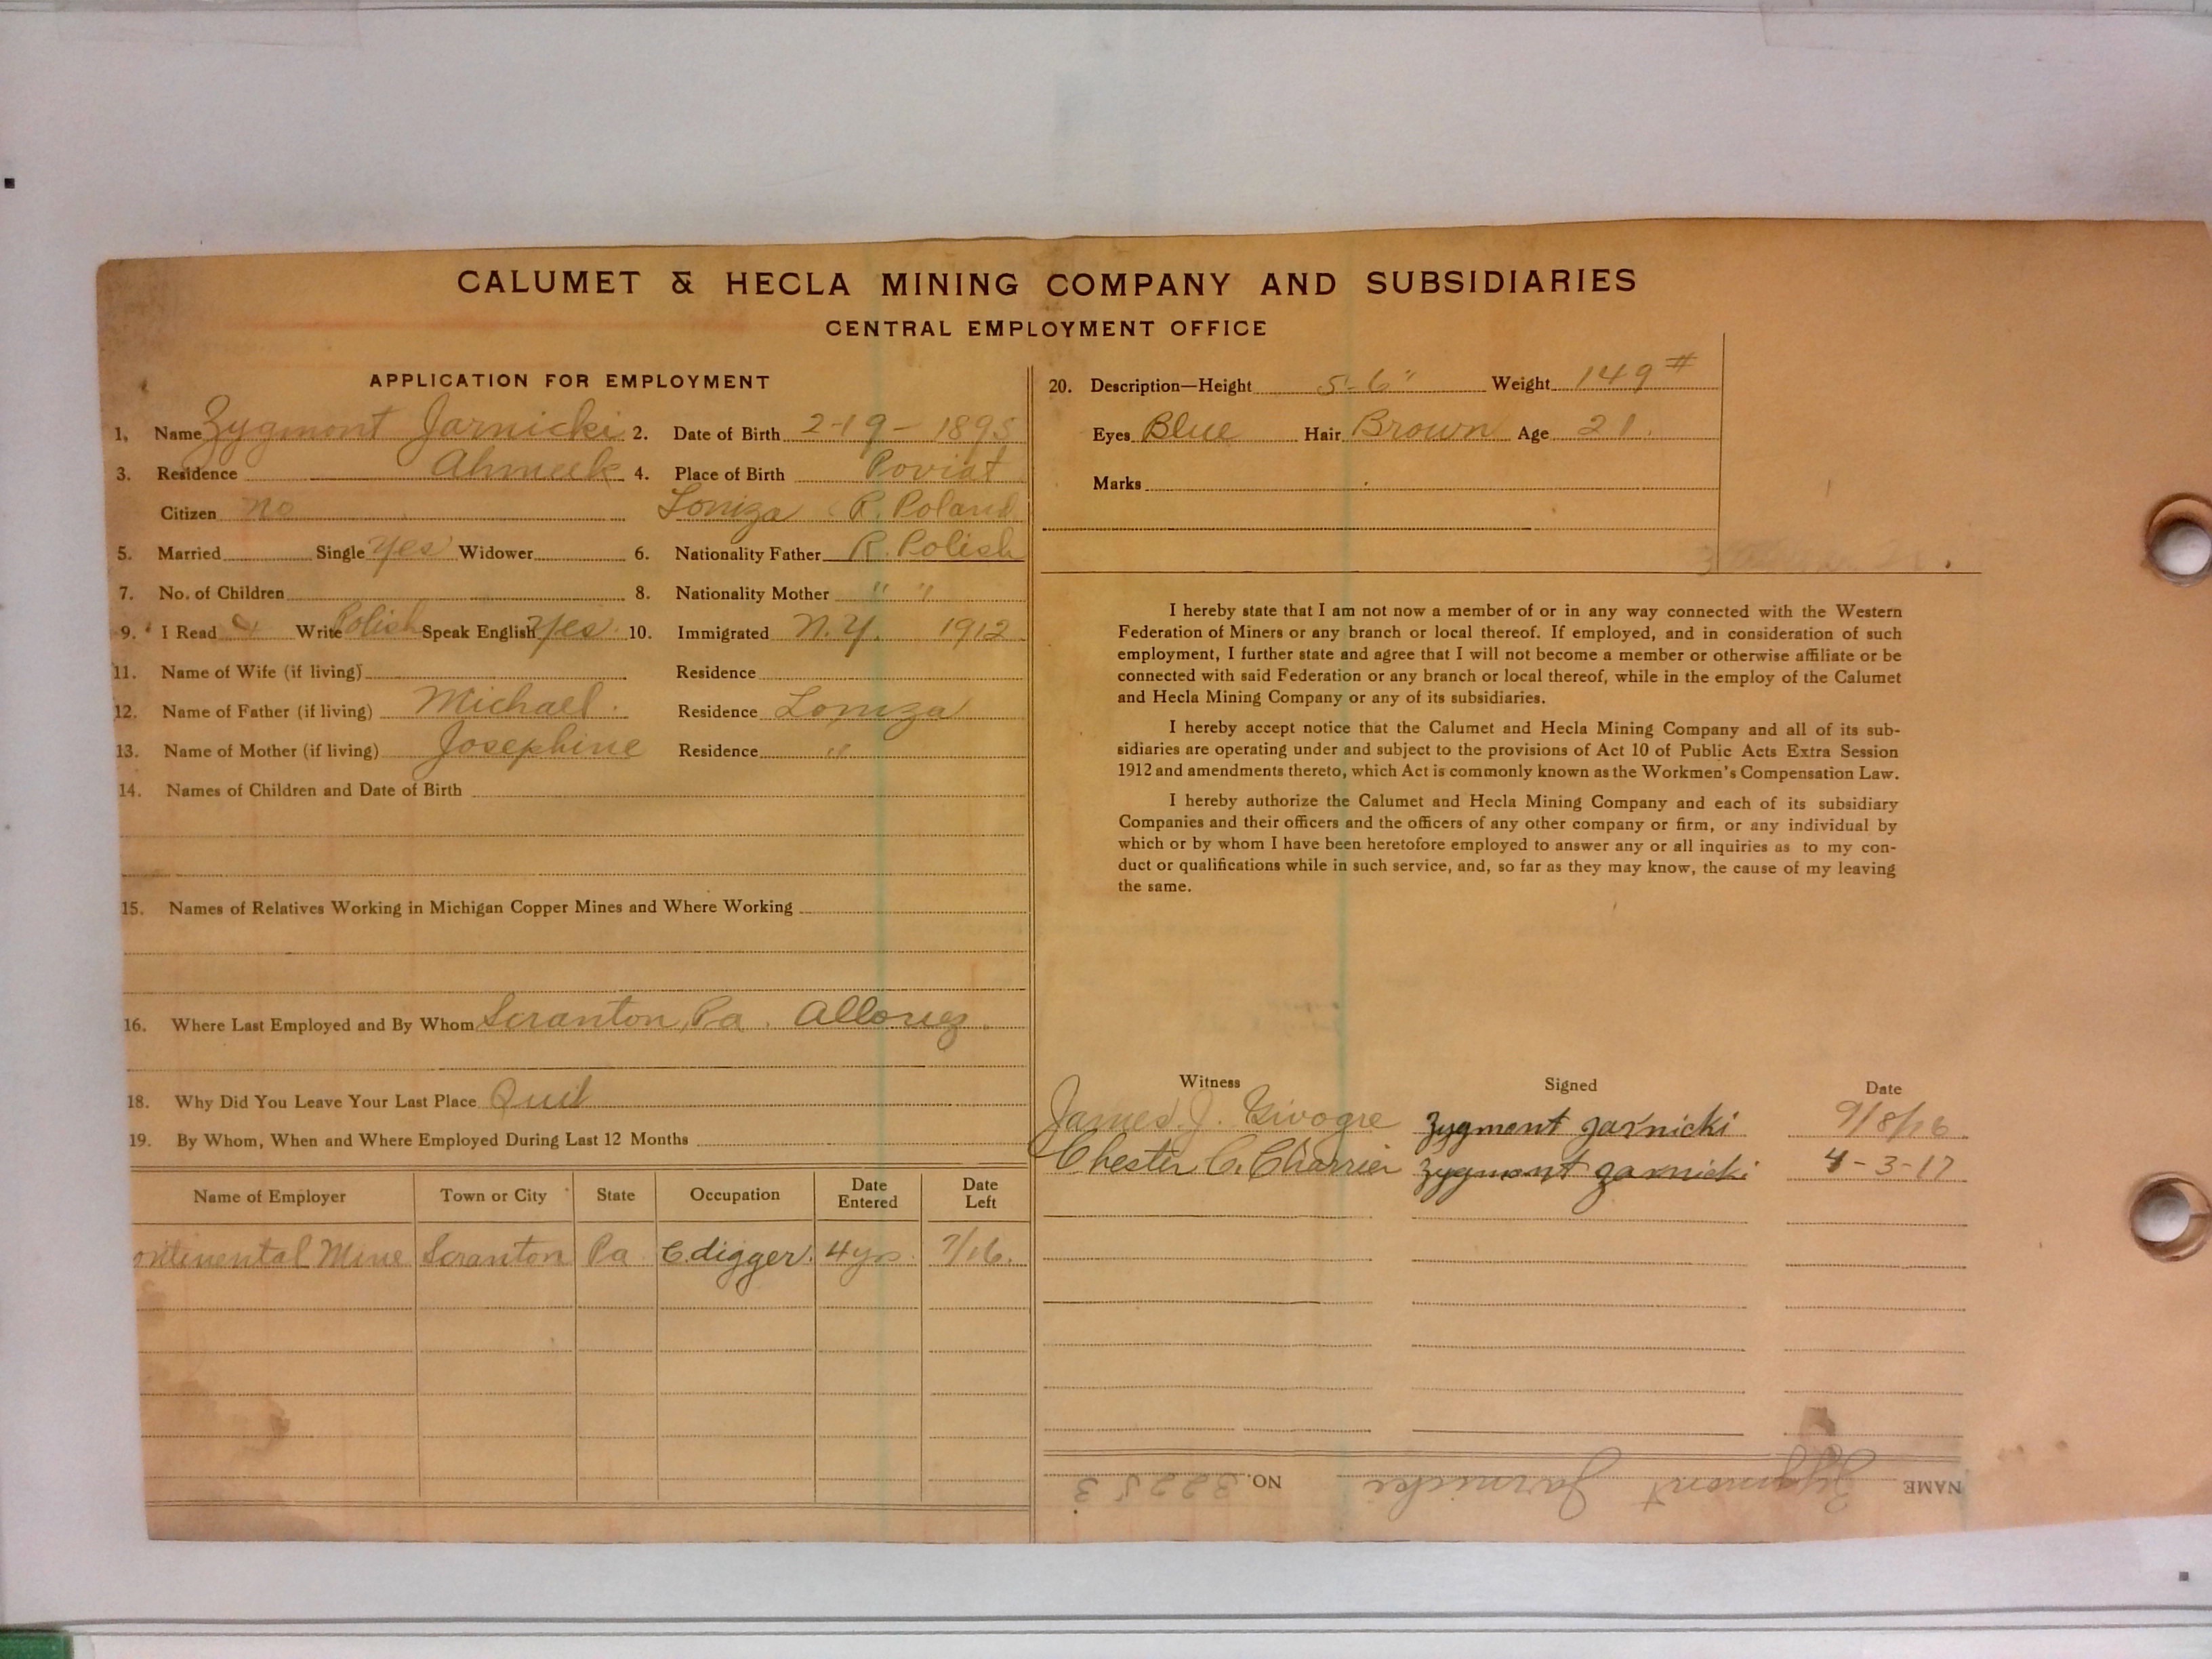 CALUMET & HECLA MINING COMPANY AND SUBSIDIARIES
CENTRAL EMPLOYMENT OFFICE
APPLICATION FOR EMPLOYMENT
1, Name Zygmont Jarnicki 2. Date of Birth 2-19-1895
3. Residence Ahmeek 4. Place of Birth Poviat
Citizen no Lomza R. Poland
5. Married Single yes Widower 6. Nationality Father R. Polish
7. No. of Children 8. Nationality Mother " "
9. I Read & Write Polish Speak English Yes 10. Immigrated N.Y. 1912
11. Name of Wife (if living) Residence
12. Name of Father (if living) Michael Residence Lomza
13. Name of Mother (if living) Josephine Residence "
14. Names of Children and Date of Birth
15. Names of Relatives Working in Michigan Copper Mines and Where Working
16. Where Last Employed and By Whom Scranton, Pa. Allouez
18. Why Did You Leave Your Last Place Quit
19. By Whom, When and Where Employed During Last 12 Months
Name of Employer Town or City State Occupation Date Entered Date Left
ontinental Mine Scranton Pa C. digger. 4 yrs. 7/16.
20. Description—Height 5-6" Weight 149#
Eyes Blue Hair Brown Age 21.
Marks
I hereby state that I am not now a member of or in any way connected with the Western
Federation of Miners or any branch or local thereof. If employed, and in consideration of such
employment, I further state and agree that I will not become a member or otherwise affiliate or be
connected with said Federation or any branch or local thereof, while in the employ of the Calumet
and Hecla Mining Company or any of its subsidiaries.
I hereby accept notice that the Calumet and Hecla Mining Company and all of its sub-
sidiaries are operating under and subject to the provisions of Act 10 of Public Acts Extra Session
1912 and amendments thereto, which Act is commonly known as the Workmen's Compensation Law.
I hereby authorize the Calumet and Hecla Mining Company and each of its subsidiary
Companies and their officers and the officers of any other company or firm, or any individual by
which or by whom I have been heretofore employed to answer any or all inquiries as to my con-
duct or qualifications while in such service, and, so far as they may know, the cause of my leaving
the same.
Witness Signed Date
James J. Givogre Zygmont Jarnicki 9/8/16
Chester C. Charrier Zygmont Jarnicki 4-3-17
NAME Zygmont Jarnicki NO. 32253